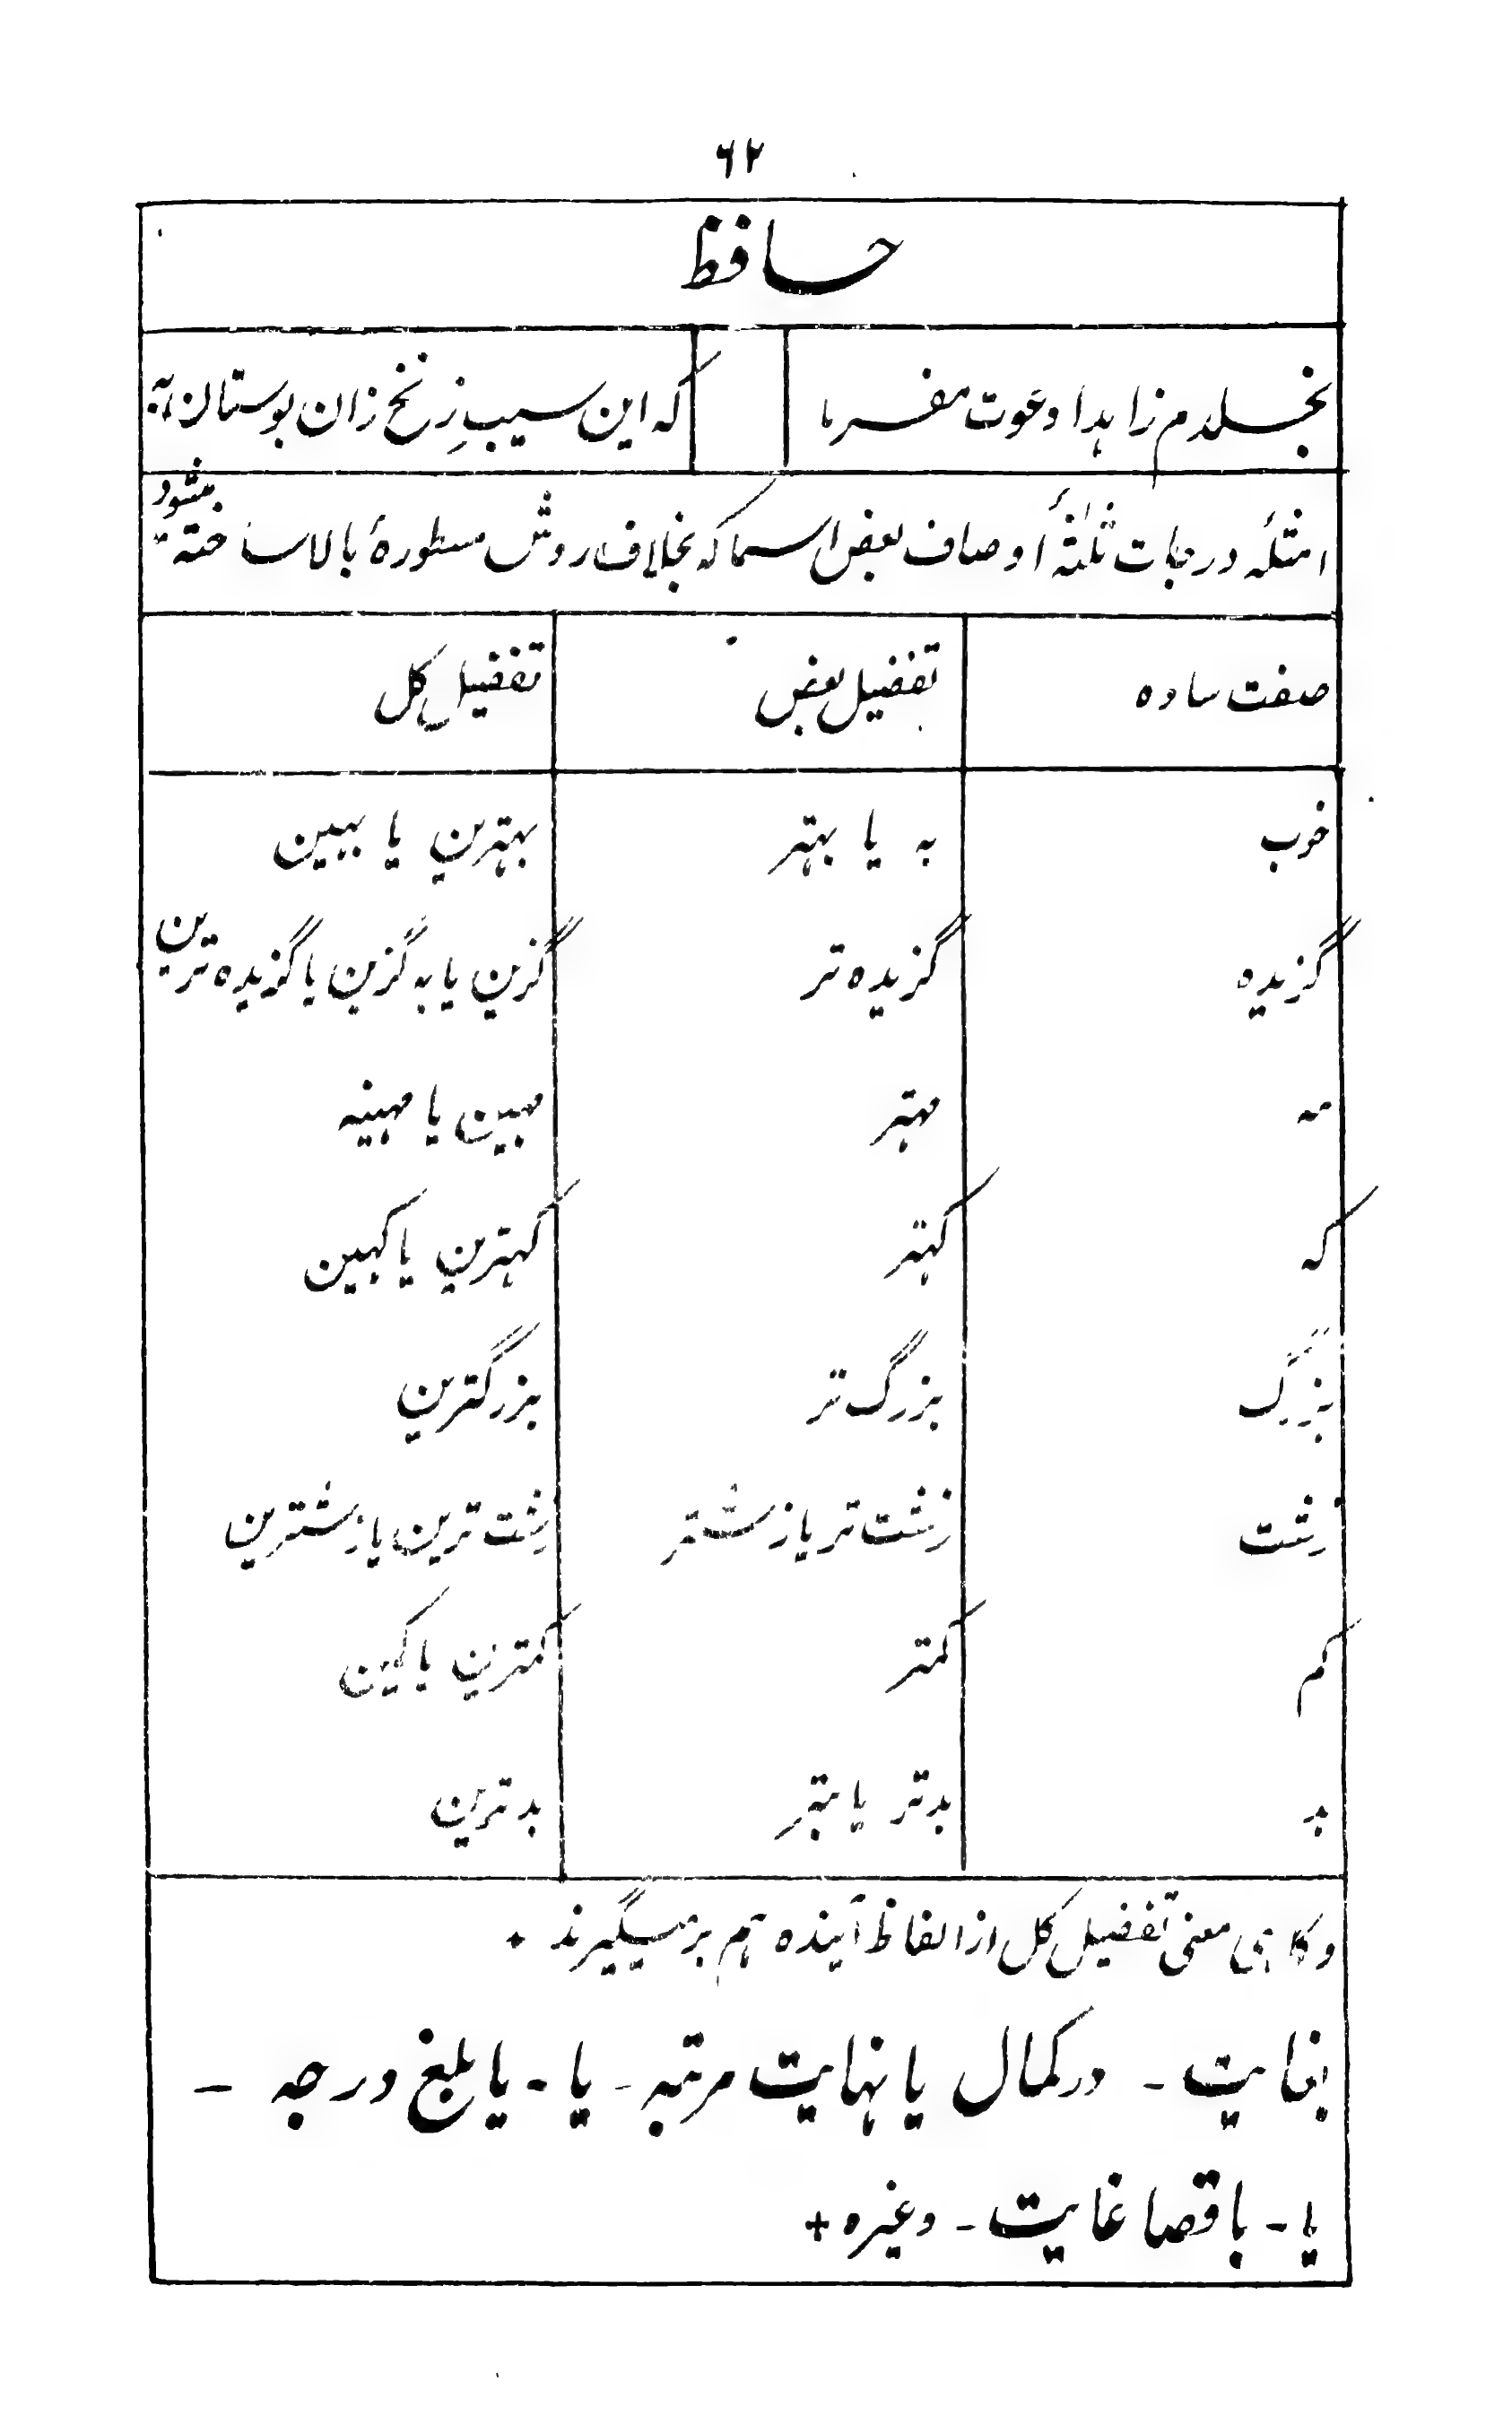 ۶۲
حافظ
بخلدم زاهدا دعوت مفرما
که این سیب زنخ زان بوستان به
امثلهٔ درجات ثلثهٔ اوصاف بعض اسما که بخلاف روش مسطورهٔ بالا ساخته میشود
صفت ساده تفضیل بعض تفضیل کل
خوب به یا بهتر بهترین یا بهین
گزیده گزیده تر گزین یا به گزین یا گزیده ترین
مه مهتر مهین یا مهینه
که کهتر کهترین یا کهین
بزرگ بزرگ تر بزرگترین
زشت زشت تر یا زشتر زشت ترین یا زشترین
کم کمتر کمترین یا کمین
بد بدتر یا بتر بدترین
و گاهی معنی تفضیل کل از الفاظ آینده هم بر میگیرند ٠
بغایت - در کمال یا نهایت مرتبه - یا - یا بلغ درجه -
یا - باقصا غایت - وغیره +